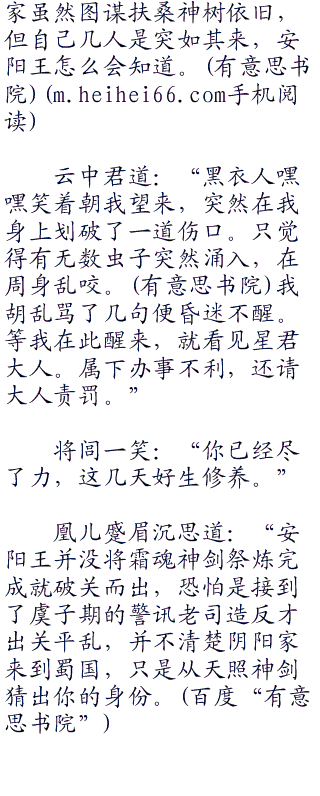 家虽然图谋扶桑神树依旧，
但自己几人是突如其来，安
阳王怎么会知道。(有意思书
院)(m.heihei66.com手机阅
读)
云中君道：“黑衣人嘿
嘿笑着朝我望来，突然在我
身上划破了一道伤口。只觉
得有无数虫子突然涌入，在
周身乱咬。(有意思书院)我
胡乱骂了几句便昏迷不醒。
等我在此醒来，就看见星君
大人。属下办事不利，还请
大人责罚。”
将闾一笑：“你已经尽
了力，这几天好生修养。”
凰儿蹙眉沉思道：“安
阳王并没将霜魂神剑祭炼完
成就破关而出，恐怕是接到
了虞子期的警讯老司造反才
出关平乱，并不清楚阴阳家
来到蜀国，只是从天照神剑
猜出你的身份。(百度“有意
思书院”)